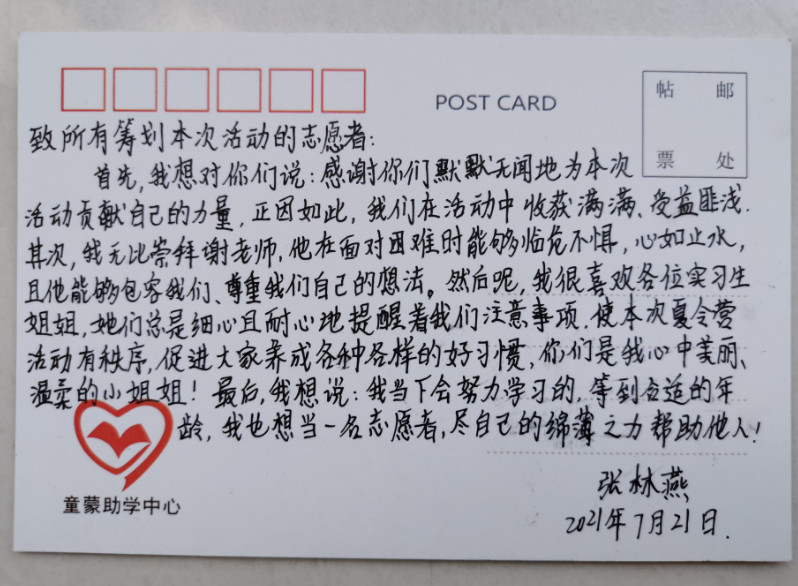 POST CARD
帖 邮
票 处
致所有筹划本次活动的志愿者：
首先，我想对你们说：感谢你们默默无闻地为本次
活动贡献自己的力量，正因如此，我们在活动中收获满满、受益匪浅．
其次，我无比崇拜谢老师，他在面对困难时能够临危不惧，心如止水，
且他能够包容我们、尊重我们自己的想法。然后呢，我很喜欢各位实习生
姐姐，她们总是细心且耐心地提醒着我们注意事项．使本次夏令营
活动有秩序，促进大家养成各种各样的好习惯，你们是我心中美丽、
温柔的小姐姐！最后，我想说：我当下会努力学习的，等到合适的年
龄，我也想当一名志愿者，尽自己的绵薄之力帮助他人！
张林燕
2021年7月21日．
童蒙助学中心